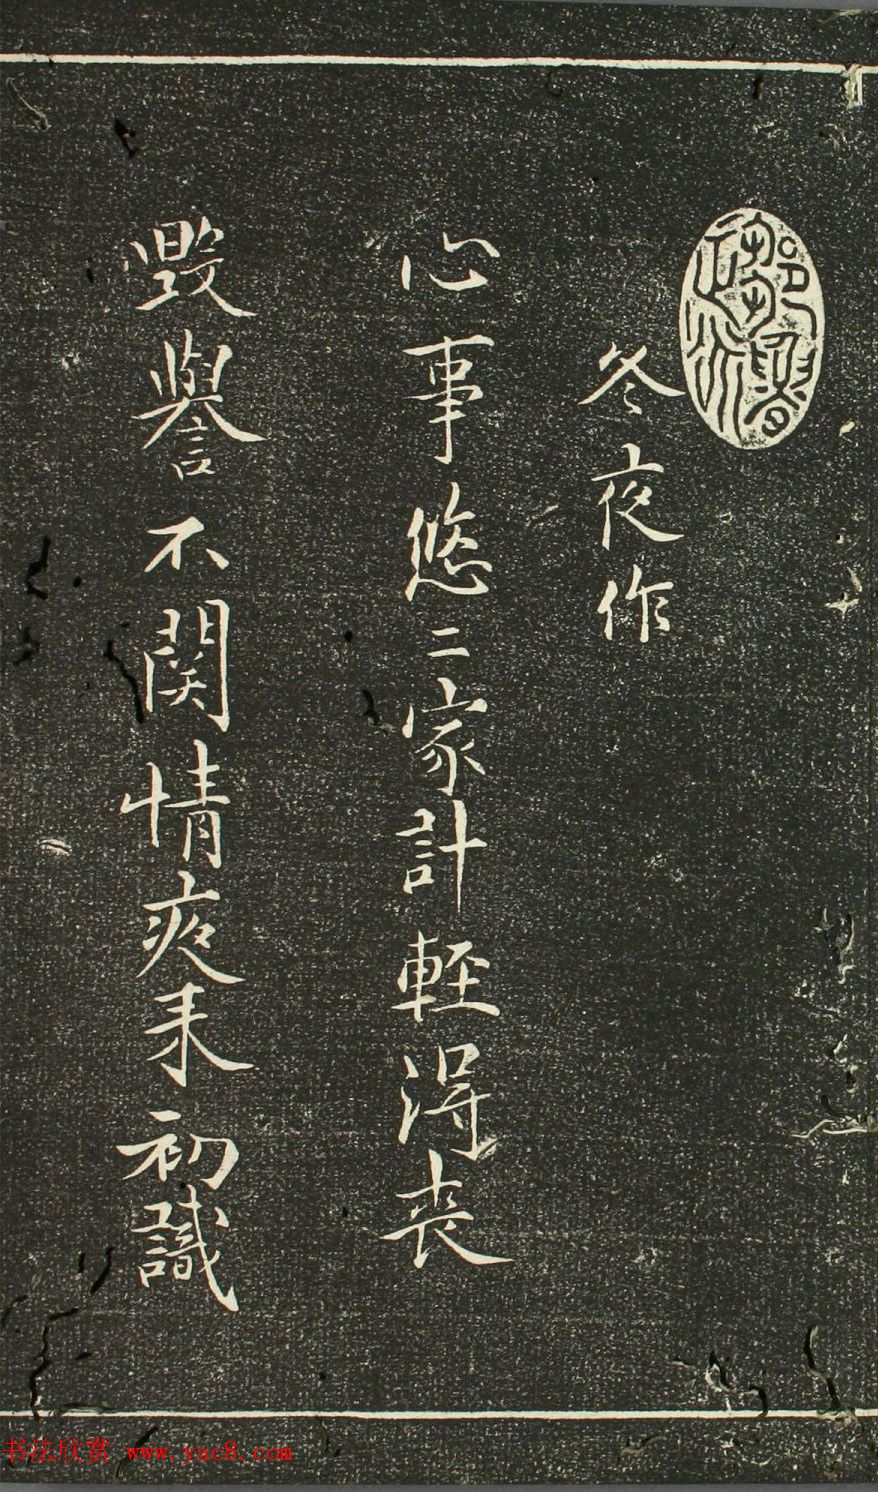 冬夜作
心事悠〻家計輕得喪
毀譽不関情夜来初識
书法欣赏 www.yac8.com